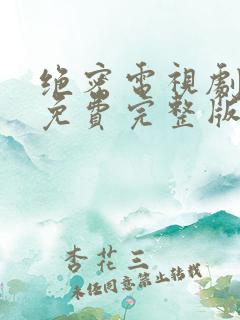 绝密電視劇
免費完整版
杏花三
未经同意禁止转载